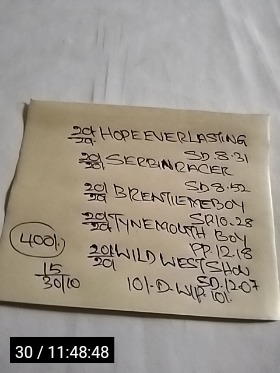 20/20 HOPEEVERLASTING
SD.8.31
20/20 SERBINRACER
SD.8.52
20/20 BRENTIEMEBOY
SR10.28
20/20 TYNEMOUTH BOY
PP.12.18
400/.
20/20 WILDWESTSHOW
SD.12.07
15
30/10
101.D.WIP 101.
30 / 11:48:48